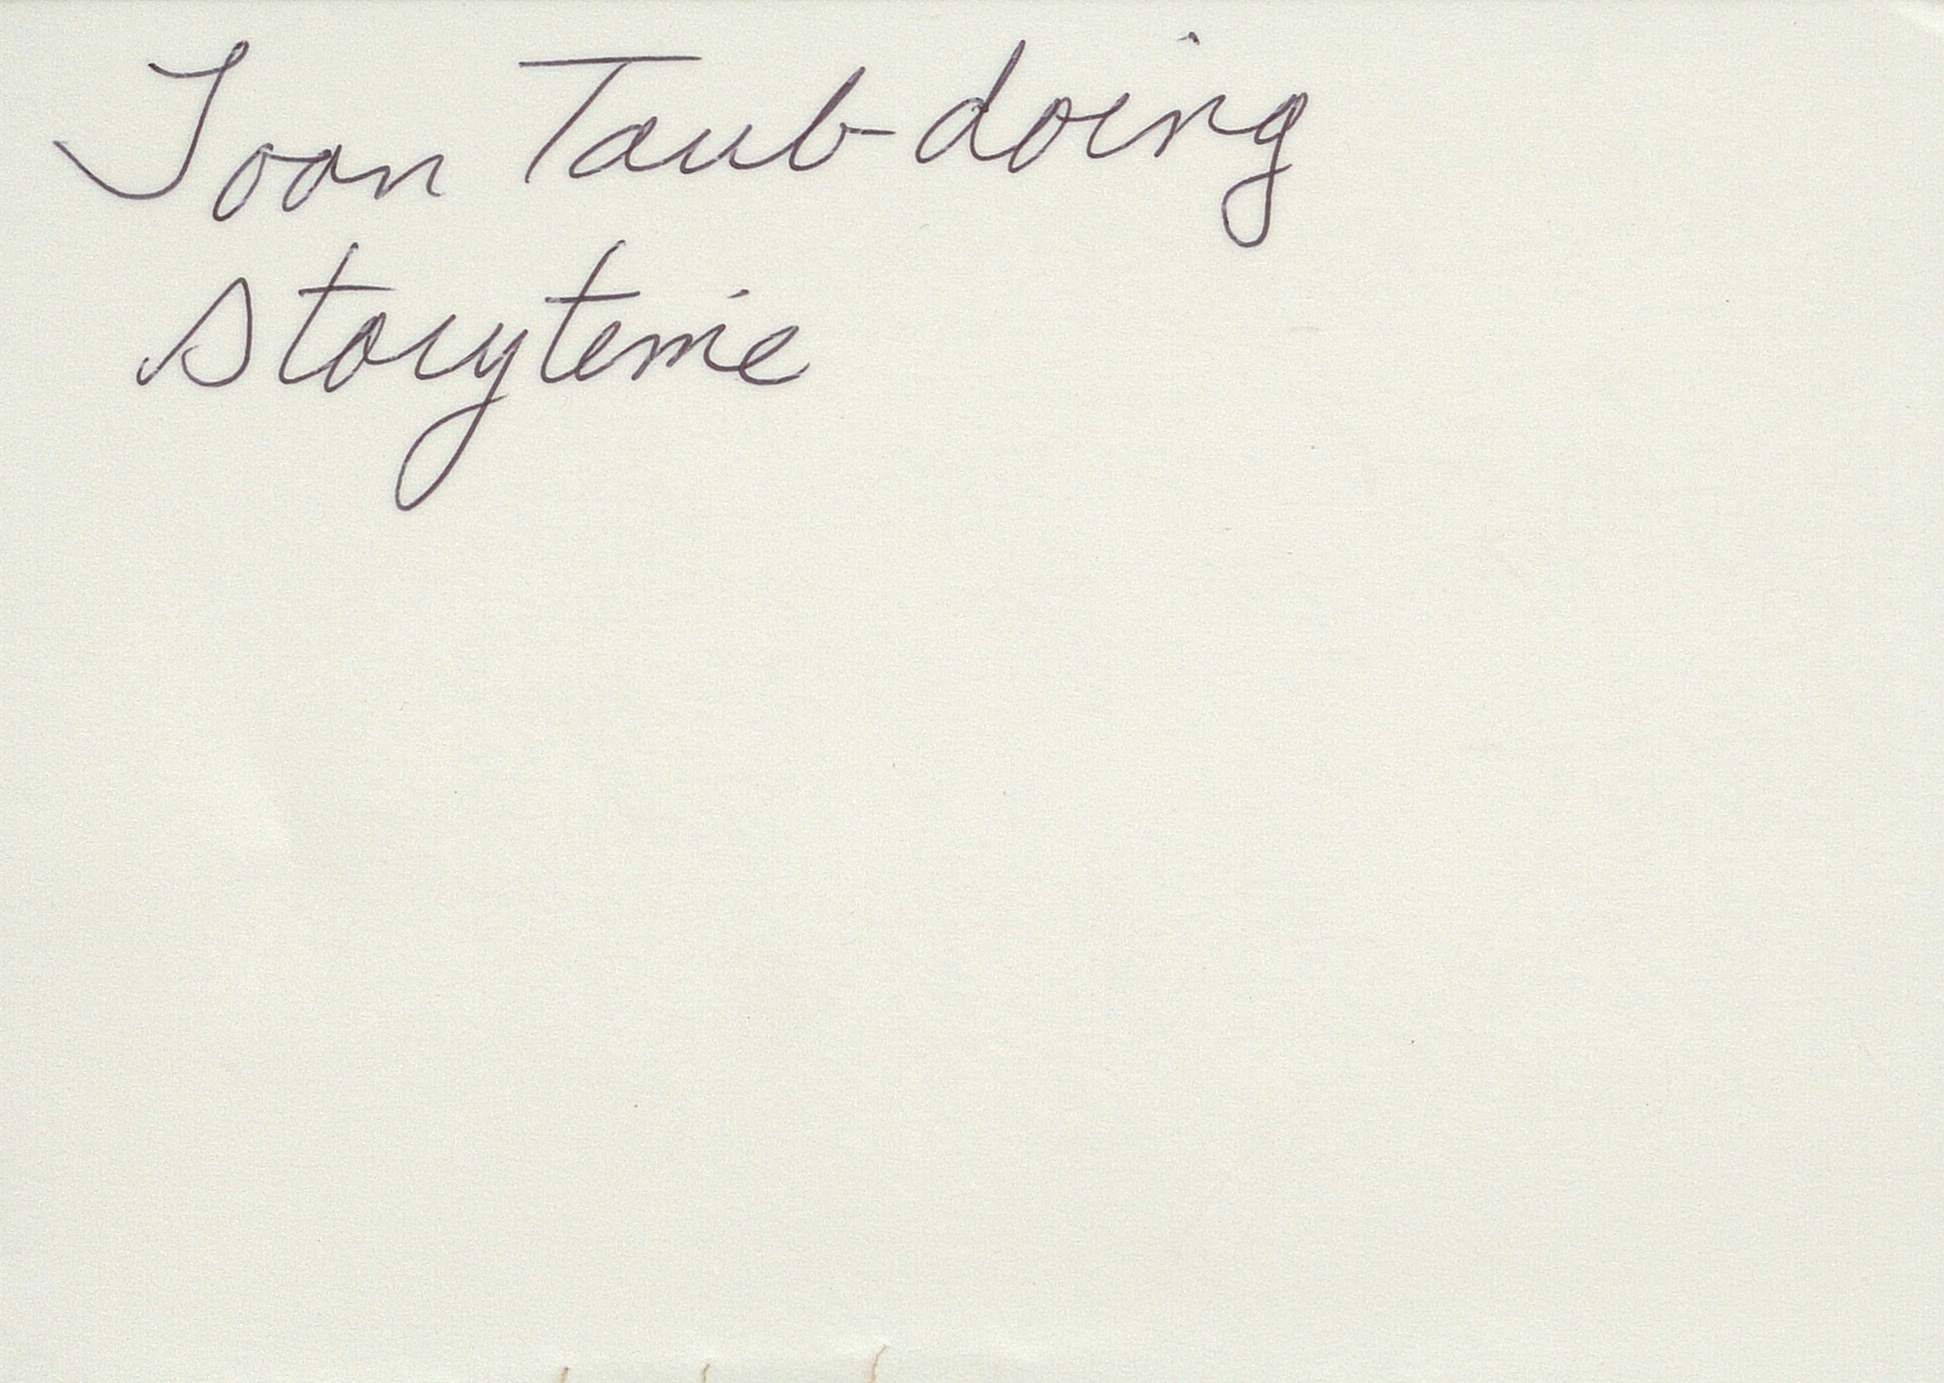 Joan Taub-doing
storytime